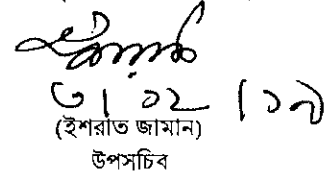 ৩১।১২।১৯
(ইশরাত জামান)
উপসচিব